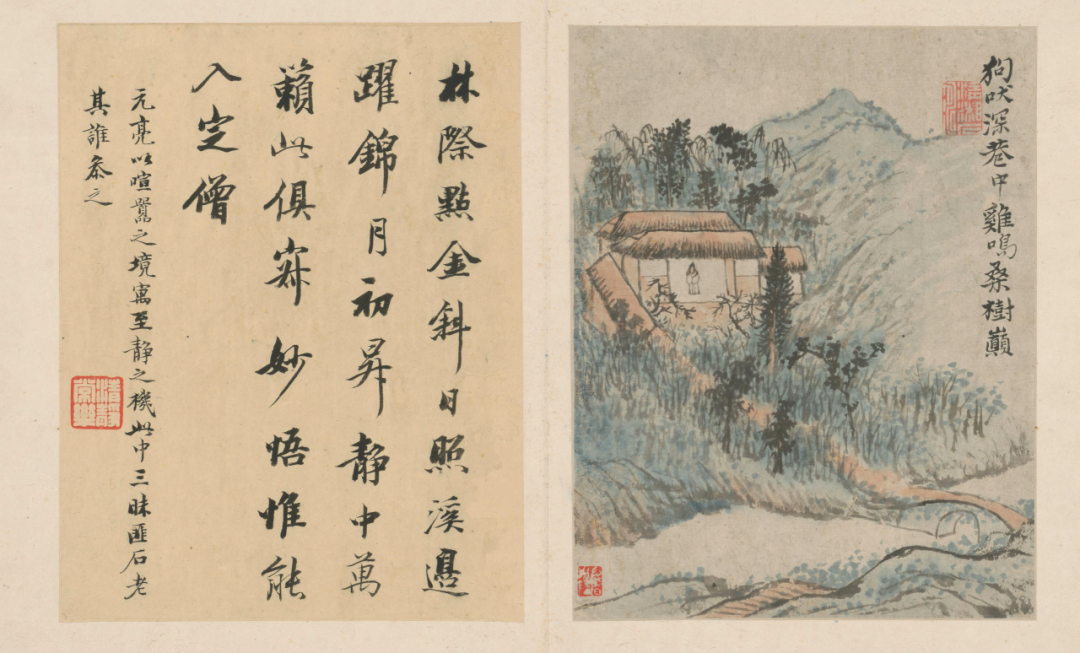 狗吠深巷中雞鳴桑樹巔
林際點金斜日照溪邊
躍錦月初昇靜中萬
籟此俱寂妙悟惟能
入定僧
元亮以喧囂之境寓至靜之機此中三昧匪石老
其誰叅之